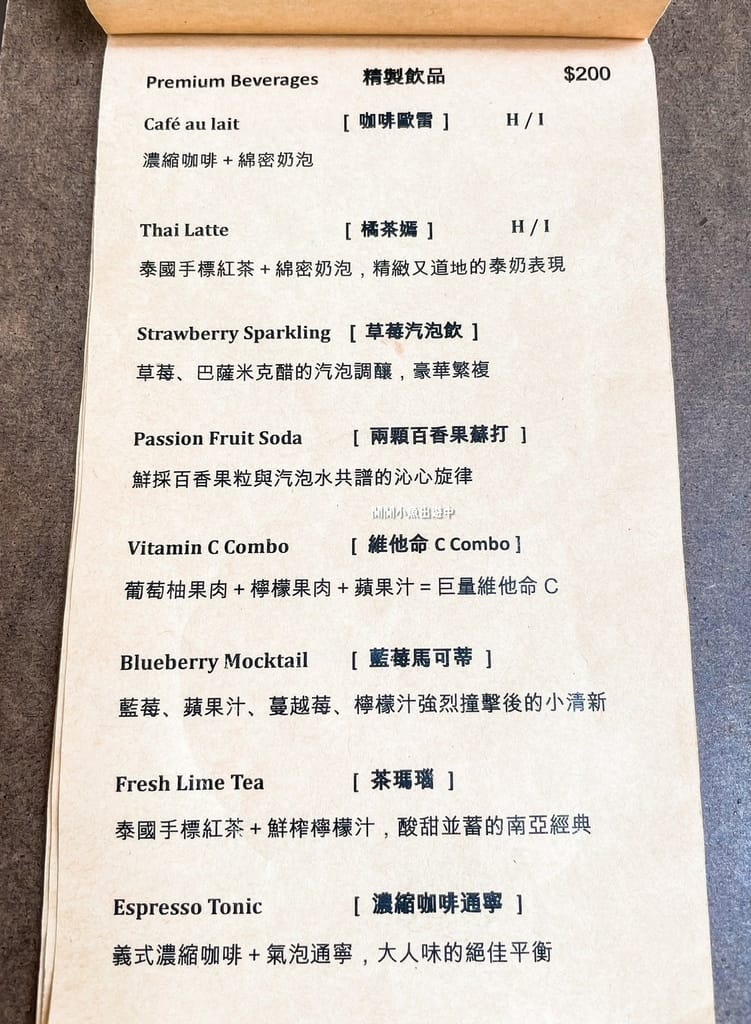 Premium Beverages 精製飲品 $200
Café au lait [ 咖啡歐雷 ] H / I
濃縮咖啡 + 綿密奶泡
Thai Latte [ 橘茶嫣 ] H / I
泰國手標紅茶 + 綿密奶泡，精緻又道地的泰奶表現
Strawberry Sparkling [ 草莓汽泡飲 ]
草莓、巴薩米克醋的汽泡調釀，豪華繁複
Passion Fruit Soda [ 兩顆百香果蘇打 ]
鮮採百香果粒與汽泡水共譜的沁心旋律
小魚出遊中
Vitamin C Combo [ 維他命 C Combo ]
葡萄柚果肉 + 檸檬果肉 + 蘋果汁 = 巨量維他命 C
Blueberry Mocktail [ 藍莓馬可蒂 ]
藍莓、蘋果汁、蔓越莓、檸檬汁強烈撞擊後的小清新
Fresh Lime Tea [ 茶瑪瑙 ]
泰國手標紅茶 + 鮮榨檸檬汁，酸甜並蓄的南亞經典
Espresso Tonic [ 濃縮咖啡通寧 ]
義式濃縮咖啡 + 氣泡通寧，大人味的絕佳平衡